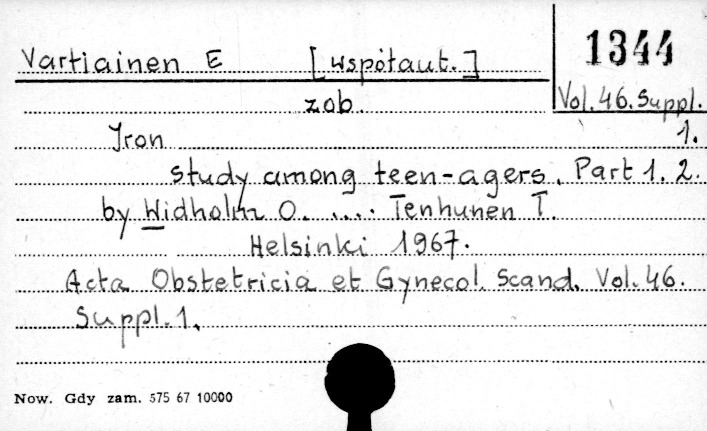 Vartiainen E [współaut.]
1344
zob.
Vol. 46. Suppl.
1.
Iron
study among teen-agers. Part 1. 2.
by Widholm O. .... Tenhunen T.
Helsinki 1967.
Acta Obstetricia et Gynecol. Scand. Vol. 46.
Suppl. 1.
Now. Gdy zam. 575 67 10000